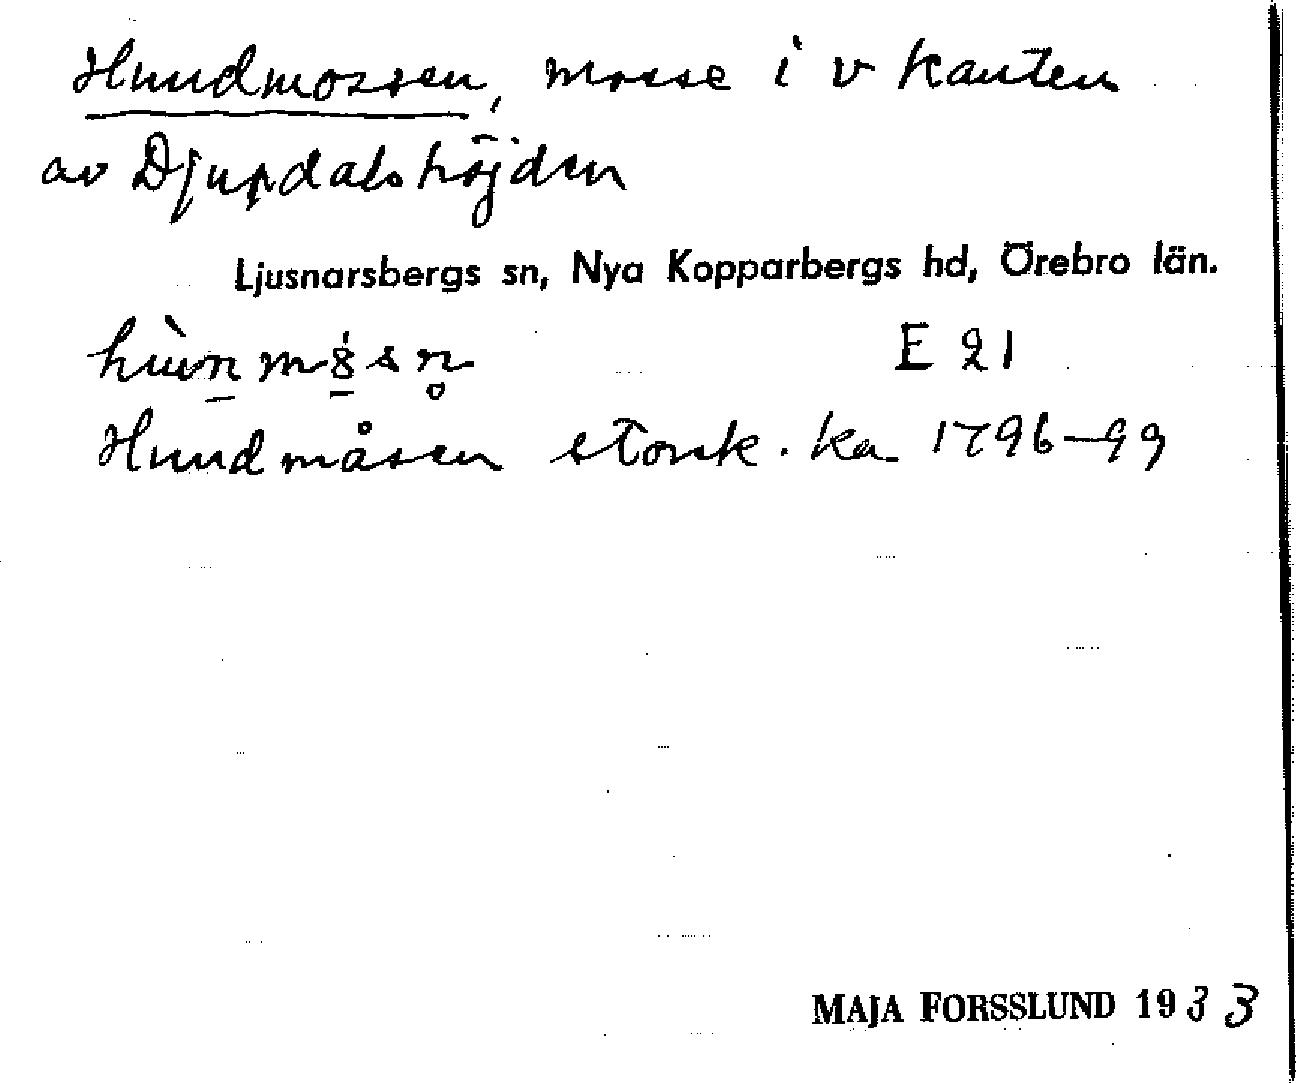 Hundmossen, mosse i v kanten
av Djupdalshöjden
Ljusnarsbergs sn, Nya Kopparbergs hd, Örebro län.
E 21
Hundmåsen storsk. ka 1796-99
MAJA FORSSLUND 1933